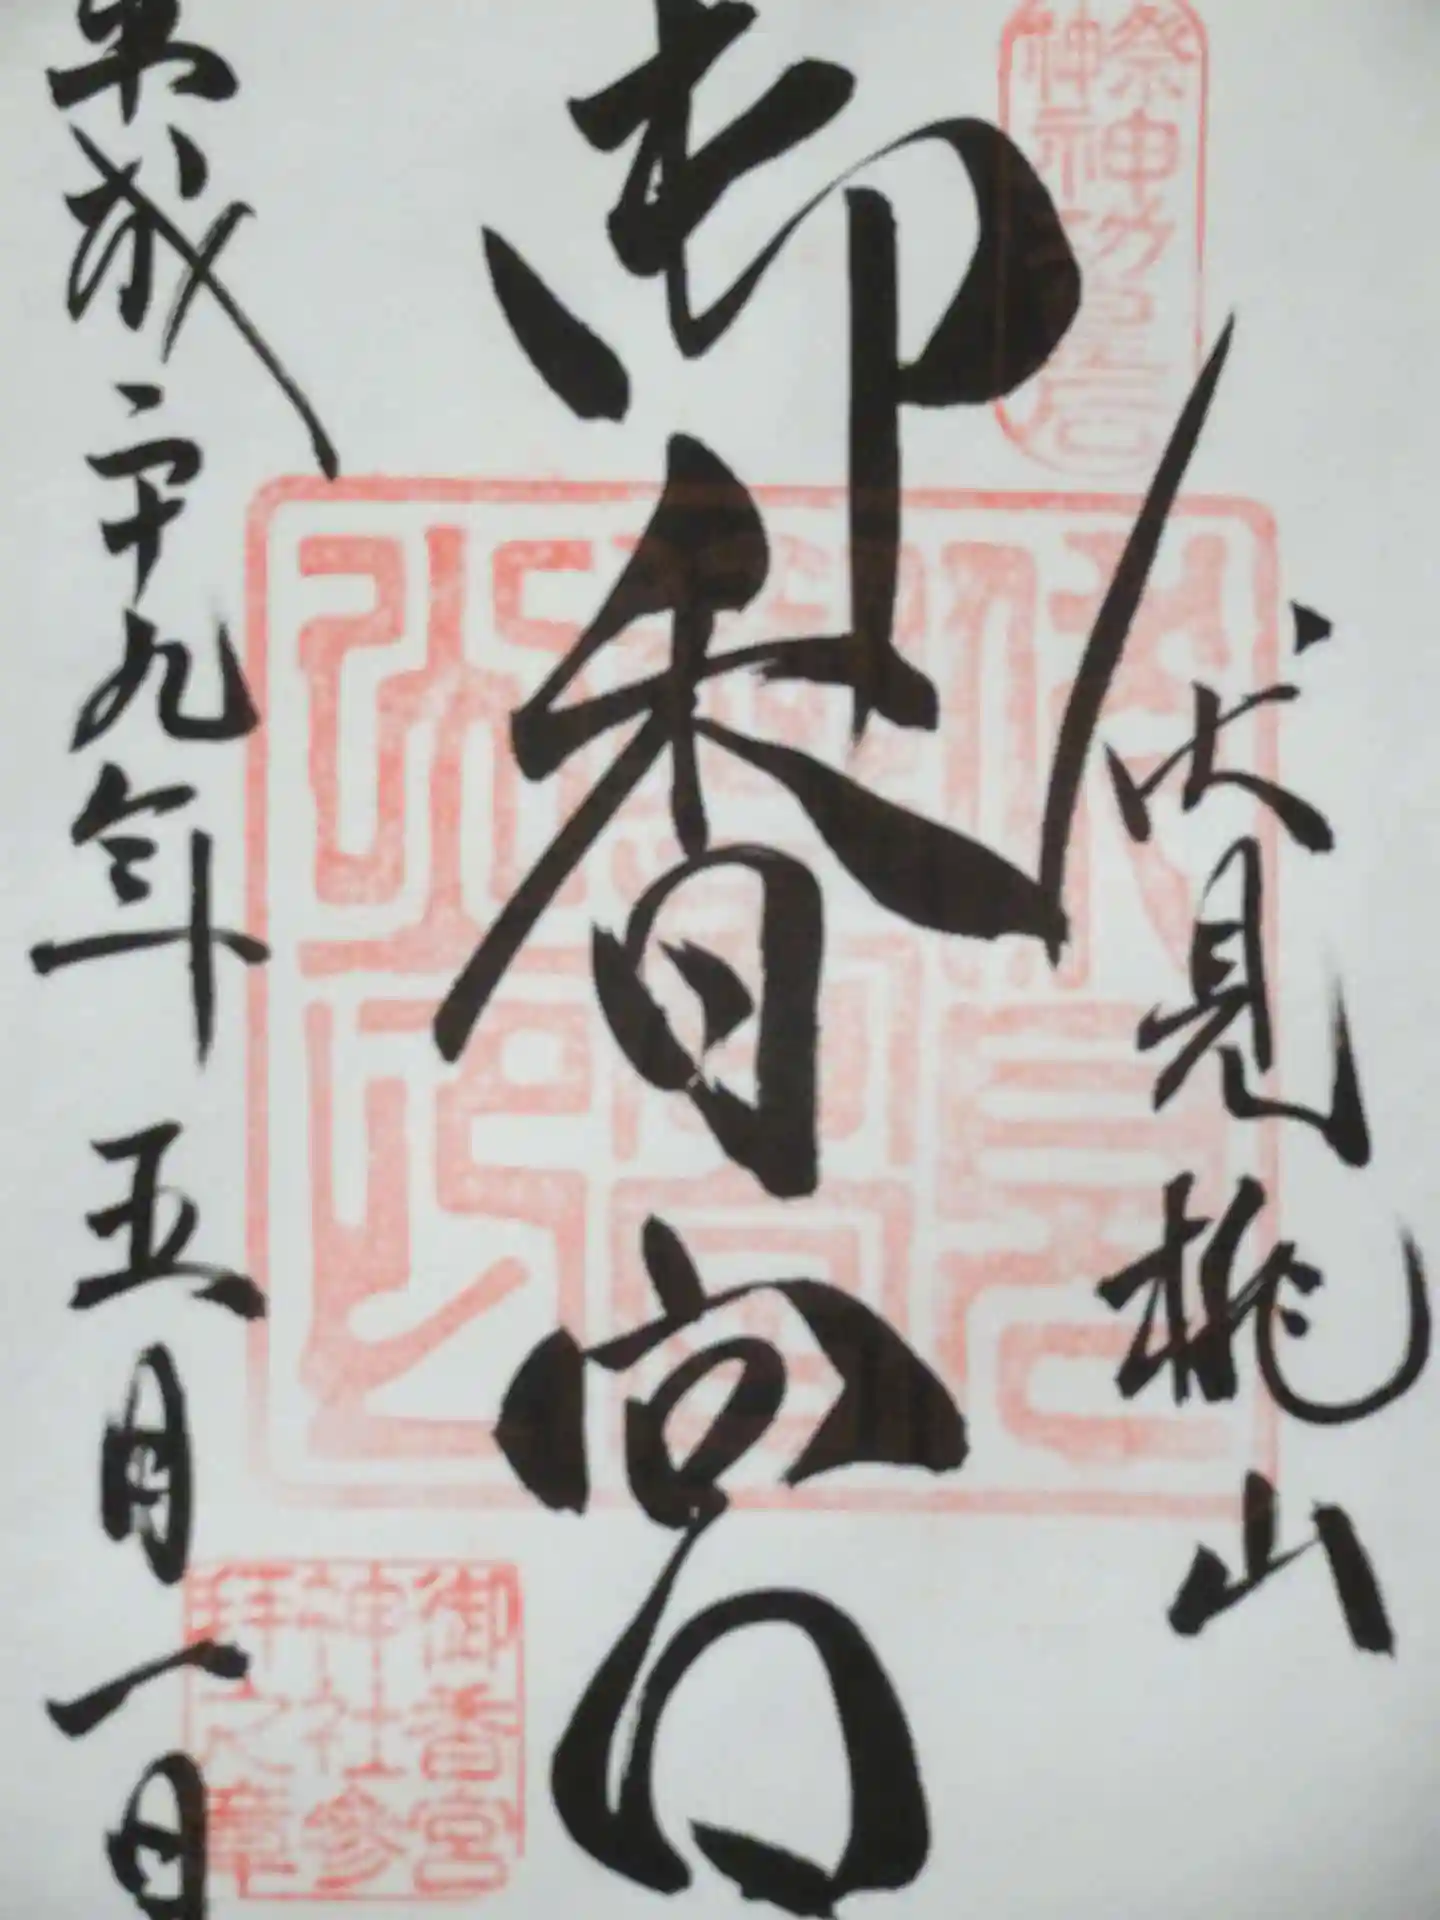 伏見桃山
御香宮
平成二十九年五月一日
祭神
神功皇后
御香宮
神社参
拝之章